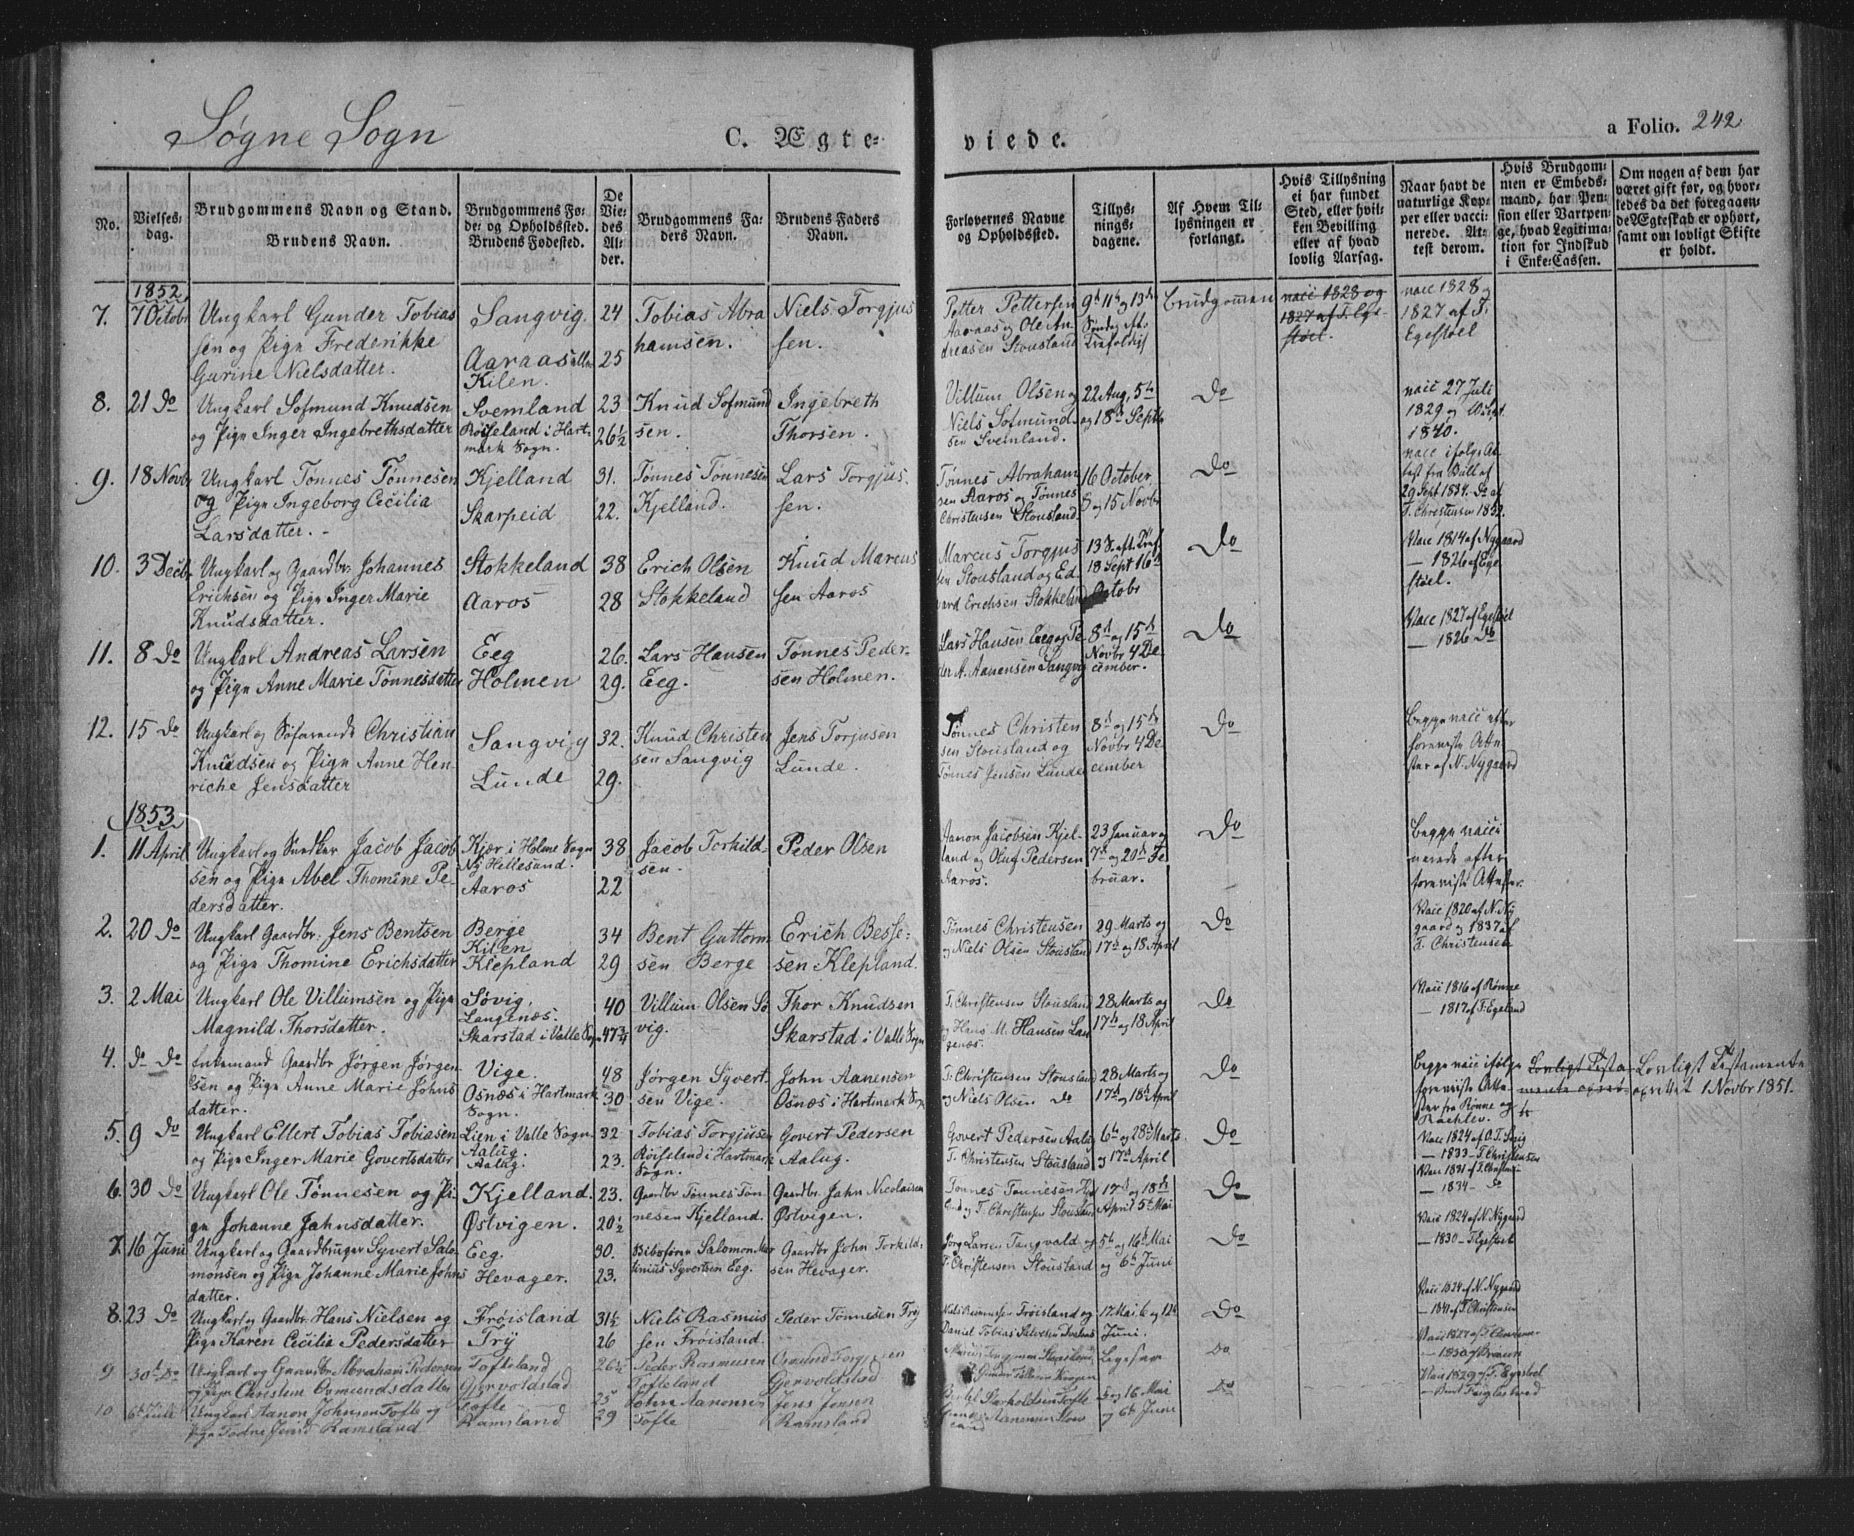 Søgne Sogn
C. Ægte-
viede.
a Folio. 242
No.
Vielses-
dag.
Brudgommens Navn og Stand.
Brudens Navn.
Brudgommens Fø-
de- og Opholdssted.
Brudens Fødested.
De
Vie-
des
Al-
der.
Brudgommens Fa-
ders Navn.
Brudens Faders
Navn.
Forlovernes Navne
og Opholdssted.
Tillys-
nings-
dagene.
Af Hvem Til-
lysningen er
forlangt.
Hvis Tillysning
ei har fundet
Sted, eller hvil-
ken Bevilling
eller af hvad
lovlig Aarsag.
Naar havt de
naturlige Kop-
per eller vacci-
nerede. At-
test derom.
Hvis Brudgom-
men er Embeds-
mand, har Pen-
sion eller Vartpen-
ge, hvad Legitima-
tion for Indskud
i Enke-Cassen.
Om nogen af dem har
været gift før, og hvor-
ledes da det foregaaen-
de Ægteskab er ophørt,
samt om lovligt Skifte
er holdt.
1852
7. 7 Octobr Ungkarl Gunder Tobias
sen og Pige Frederikke
Gurine Nielsdatter.
Sangvig
Aaraas
Kilen.
24
25
Tobias Abra
hamsen.
Niels Torgjus
sen.
Petter Pettersen
Aaraas og Ole An
dreasen Stousland
9d 11te og 13de
Søndag eft.
Trefoldigh
Brudgommen
vacc 1828 og
1827 af T. Ege-
støel.
vacc 1828 og
1827 af T.
Egestøel
8. 21 Do Ungkarl Sofmund Knudsen
og Pige Inger Ingebrethsdatter
Svemland
Røiseland i Hart-
mark Sogn.
23
26½
Knud Sofmund
sen.
Ingebreth
Thorsen.
Villum Olsen og
Niels Sofmund-
sen Svemland.
22 Aug, 5te
og 18de Septb
Do
vacc 27 Juli
1829 og
1840.
9. 18 Novbr Ungkarl Tønnes Tønnesen
og Pige Ingeborg Cecilia
Larsdatter.
Kjelland
Skarpeid
31.
22.
Tønnes Tønnesen
Kjelland.
Lars Torgjus-
sen.
Tønnes Abraham
sen Aaros og Tønnes
Christensen Stousland.
16 October,
8 og 15 Novbr
Do
vacc ifølge At
test fra Bill af
29 Sept 1834. Do af
T. Christensen 1832.
10. 3 Decbr Ungkarl og Gaardbr. Johannes
Erichsen og Pige Inger Marie
Knudsdatter.
Stokkeland
Aaros
38
28
Erich Olsen
Stokkeland
Knud Marcus
sen Aaros
Marcus Torgjus
sen Stousland og Ed
vard Erichsen Stokkeland
13 S. eft. Tref
18 Sept 16de
Octobr
Do
Vacc 1814 af Nygaard
— 1826 af Ege
støel.
11. 8 Do Ungkarl Andreas Larsen
og Pige Anne Marie Tønnesdatter
Eeg
Holmen
26.
29.
Lars Hansen
Eeg.
Tønnes Peder-
sen Holmen.
Lars Hansen Eeg og Pe
der A. Aanensen Sangvig
8de og 15de
Novbr 4 De
cember.
Do
Vacc 1827 af Egestøel
— 1826 Do
12. 15 Do Ungkarl og Søfarende Christian
Knudsen og Pige Anne Hen-
riche Jensdatter
Sangvig
Lunde
32.
29.
Knud Christen
sen Sangvig
Jens Torjusen
Lunde.
Tønnes Christen
sen Stousland og
Tønnes Jensen Lunde
8de og 15de
Novbr 4 De
cember
Do
Begge vacc efter
foreviste Atte
ster af N. Nygaard
1853
1. 11 April Ungkarl og Jacob Jacob
sen og Pige Abel Thomine Pe-
dersdatter.
Kjær i Holme Sogn
Ny Hellesund.
Aaros
38
22
Jacob Torkild-
sen.
Peder Olsen
Aanon Jacobsen Kjel-
land og Oluf Pedersen
Aaros.
23 Januar og
7de og 20de Fe
bruar.
Do
Begge vacci
nerede efter
foreviste Attester.
2. 20 Do Ungkarl Gaardbr. Jens Bentsen
og Pige Thomine Erichsdatter
Berge
Kilen
Klepland
34
29
Bent Guttorm
sen Berge
Erich Besse-
sen Klepland.
Tønnes Christensen
og Niels Olsen Stousland
29 Marts og
17de og 18 April
Do
Vacc 1820 af N. Ny
gaard og 1837 af
T. Christensen
3. 2 Mai Ungkarl Ole Villumsen og Pige
Magnild Thorsdatter.
Søvig,
Langenæs.
Skarstad i Valle Sogn
40
47¾
Villum Olsen Sø
vig.
Thor Knudsen
Skarstad i Valle Sogn
T. Christensen Stousland
og Hans M. Hansen Lan
genæs.
28 Marts og
17de og 18 April
Do
Vacc 1816 af Rønne
— 1817 af T. Egeland
4. Do Do Enkemand Gaardbr Jørgen Jørgen-
sen og Pige Anne Marie Johns
datter.
Vige.
Osnæs i Hartmark
Sogn.
48
30
Jørgen Syvert
sen Vige.
John Aanensen
Osnæs i Hartmark Sogn
T. Christensen Stousland
og Niels Olsen Do
28 Marts og
17de og 18de April
Do
Begge vacc ifølge
foreviste Atte-
ster fra Rønne og
Rachlev.
Lovligt Testa-
mente opret-
Lovligt Testamente
oprettet 1 Novbr 1851.
5. 9 Do Ungkarl Ellert Tobias Tobiasen
og Pige Inger Marie Govertsdatter
Lien i Valle Sogn.
Aalug.
Aalug.
32
23.
Tobias Torgjusen
Røiseland i Hartmark
Sogn.
Govert Pedersen
Aalug.
Govert Pedersen Aalug
T. Christensen Stousland
6te og 28de Marts
og 17de April
Do
Vacc 1824 af
— 1833 — T. Christensen
6. 30 Do Ungkarl Ole Tønnesen og Pi-
ge Johanne Jahnsdatter.
Kjelland.
Østvigen.
23.
20½
Gaardbr Tønnes Tøn
nesen Kjelland.
Gaardbr. Jahn Nicolaisen
Østvigen.
Tønnes Tønnesen Kjel
land og T. Christensen Stousland
17de og 18de
April 5te Mai
Do
Vacc 1831 af T. Christen
— 1834 — do
7. 16 Juni Ungkarl og Gaardbruger Syvert Salo
monsen og Pige Johanne Marie Johns
datter.
Eeg.
Hevager.
30.
23.
Salomon
Syvertsen Eeg.
Gaardbr John Torkild-
sen Hevager.
Jørg Larsen Tangvald og
T. Christensen Stousland
5te og 16de Mai
og 6te Juni
Do
Vacc 1824 af N. Nygaard
— 1830 — T. Egestøel
8. 23 Do Ungkarl og Gaardbr. Hans Nielsen og
Pige Karen Cecilia Pedersdatter
Frøisland
Try
31½
26
Niels Rasmus
sen Frøisland.
Peder Tønnesen Try
Niels Rasmussen Frøisland og
Daniel Tobias Salvesen
17 Mai 6 og 12te
Juni.
Do
Vacc 1824 af N. Nygaard
— 1841 af T. Christensen
9 30te Do Ungkarl og Gaardbr Abraham Pedersen
og Pige Christine Osmundsdatter
Tofteland
Gjervoldstad
26½
25
Peder Rasmusen
Tofteland
Osmund Torgjusen
Gjervoldstad
Do
10 6te Juli Ungkarl Aanon Johnsen Tofte og
Pige Jensd Ramsland
Tofte
Ramsland
29
John Aanonsen
Tofte
Jens Jensen
Ramsland
5 og 16 Mai
og 6te Juni
Do